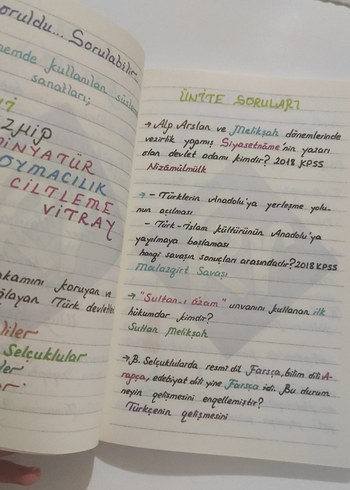 oruldu... Sorulabilir...
nemde kullanılan süsleme
sanatları;
ZHİP
MİNYATÜR
OYMACILIK
CİLTLEME
VİTRAY
koruyan ve
Türk devletleri
Selçuklular
ÜNİTE SORULARI
→ Alp Arslan ve Melikşah dönemlerinde
vezirlik yapmış Siyasetnâme'nin yazarı
olan devlet adamı kimdir? 2018 KPSS
Nizâmülmülk
→ - Türklerin Anadolu'ya yerleşme yolu-
nun açılması
- Türk-İslam kültürünün Anadolu'ya
yayılmaya başlaması
hangi savaşın sonuçları arasındadır? 2018 KPSS
Malazgirt Savaşı
→ "Sultan-ı âzam" unvanını kullanan ilk
hükümdar kimdir?
Sultan Melikşah
→ B. Selçuklularda resmî dil Farsça, bilim dili A-
rapça, edebiyat dili yine Farsça idi. Bu durum
neyin gelişmesini engellemiştir?
Türkçenin gelişmesini